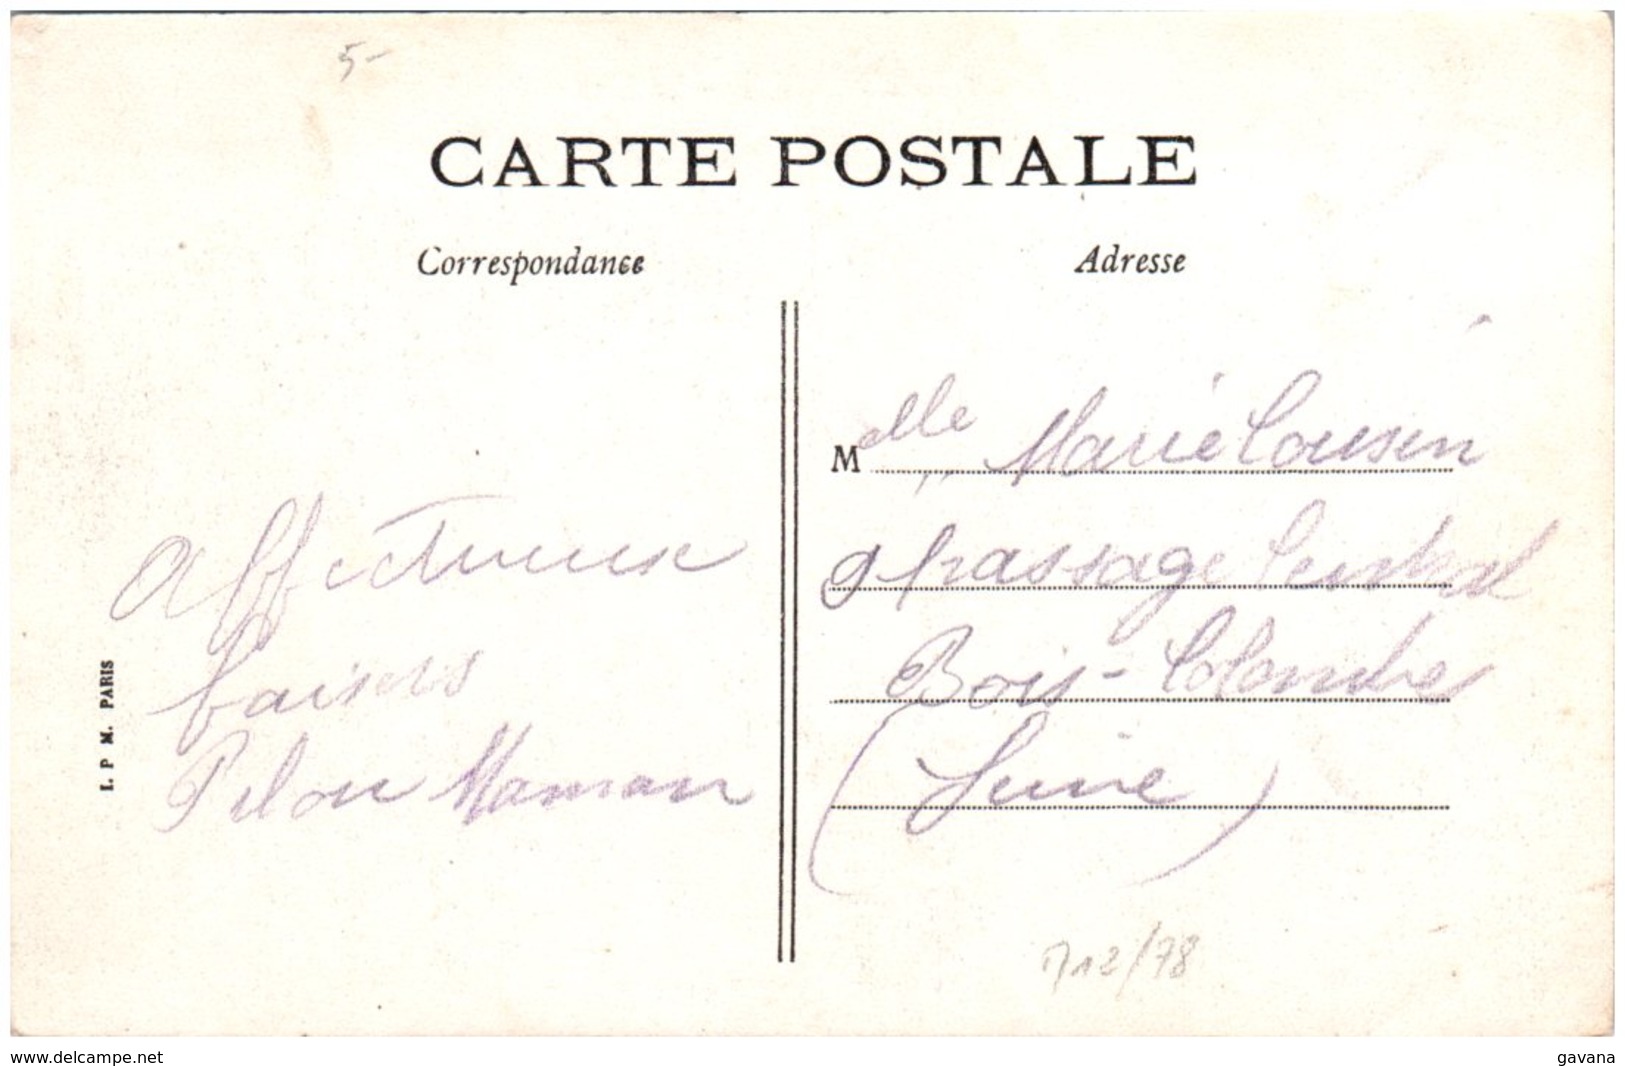 5-
CARTE POSTALE
Correspondance
Adresse
Affectueux
baisers
Maman
I. P M. PARIS
Melle Marie Cousin
9 passage Central
Bois-Colombes
(Seine)
712/78
www.delcampe.net
gavana